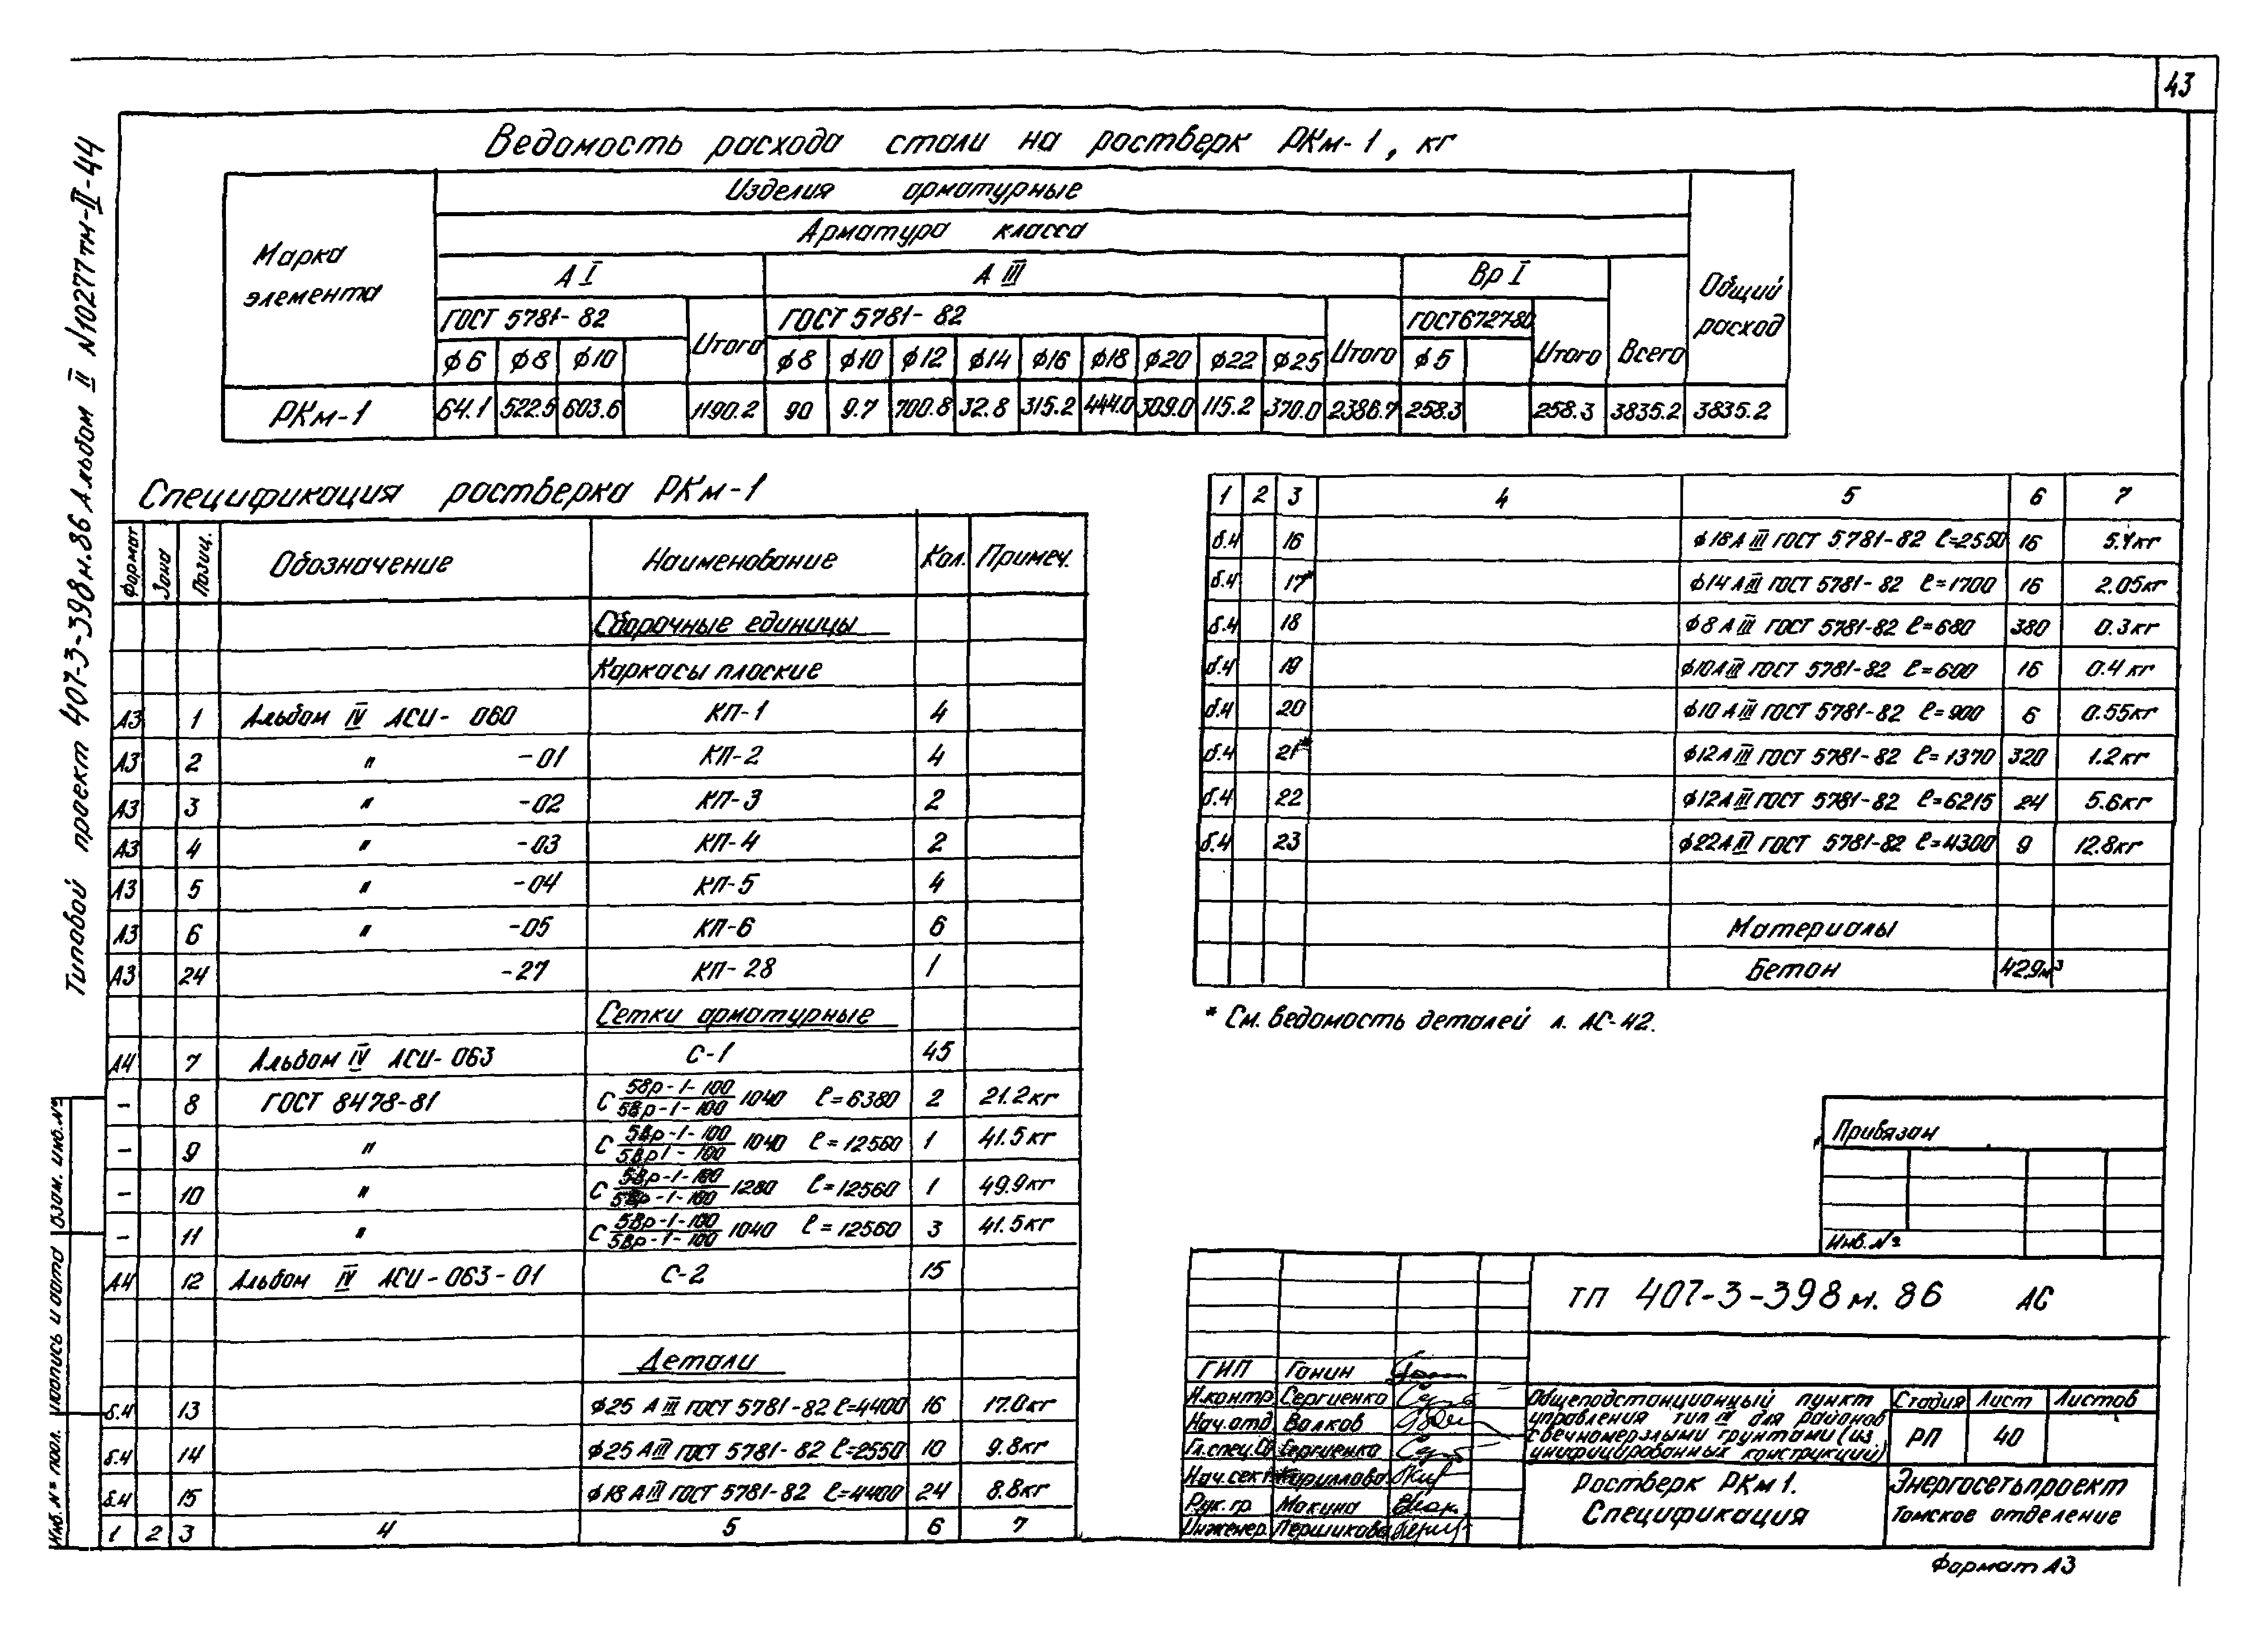 43
Типовой проект 407-3-398м.86 Альбом II N10277тм-II-44
Ведомость расхода стали на ростверк РКм-1, кг
Марка элемента
Изделия арматурные
Арматура класса
А I
А III
Вр I
ГОСТ 5781-82
Итого
ГОСТ 5781-82
Итого
ГОСТ6727-80
Итого
Всего
Общий расход
ф6 ф8 ф10 ф8 ф10 ф12 ф14 ф16 ф18 ф20 ф22 ф25 ф5
РКм-1 64.1 522.5 603.6 1190.2 90 9.7 700.8 32.8 315.2 444.0 309.0 115.2 370.0 2386.7 258.3 258.3 3835.2 3835.2
Спецификация ростверка РКм-1
Формат Зона Позиц. Обозначение Наименование Кол. Примеч.
Сборочные единицы
Каркасы плоские
А3 1 Альбом IV АСИ-060 КП-1 4
А3 2 " -01 КП-2 4
А3 3 " -02 КП-3 2
А3 4 " -03 КП-4 2
А3 5 " -04 КП-5 4
А3 6 " -05 КП-6 6
А3 24 -27 КП-28 1
Сетки арматурные
А4 7 Альбом IV АСИ-063 С-1 45
- 8 ГОСТ 8478-81 С 5Вр-1-100/5Вр-1-100 1040 ℓ=6380 2 21.2кг
- 9 " С 5Вр-1-100/5Вр1-100 1040 ℓ=12560 1 41.5кг
- 10 " С 5Вр-1-100/5Вр-1-100 1280 ℓ=12560 1 49.9кг
- 11 " С 5Вр-1-100/5Вр-1-100 1040 ℓ=12560 3 41.5кг
А4 12 Альбом IV АСИ-063-01 С-2 15
Детали
б.4 13 ф25 А III ГОСТ 5781-82 ℓ=4400 16 17.0кг
б.4 14 ф25 А III ГОСТ 5781-82 ℓ=2550 10 9.8кг
б.4 15 ф18 А III ГОСТ 5781-82 ℓ=4400 24 8.8кг
1 2 3 4 5 6 7
1 2 3 4 5 6 7
б.4 16 ф18А III ГОСТ 5781-82 ℓ=2550 16 5.4кг
б.4 17* ф14 А III ГОСТ 5781-82 ℓ=1700 16 2.05кг
б.4 18 ф8 А III ГОСТ 5781-82 ℓ=680 380 0.3кг
б.4 19 ф10А III ГОСТ 5781-82 ℓ=600 16 0.4кг
б.4 20 ф10 А III ГОСТ 5781-82 ℓ=900 6 0.55кг
б.4 21* ф12А III ГОСТ 5781-82 ℓ=1370 320 1.2кг
б.4 22 ф12А III ГОСТ 5781-82 ℓ=6215 24 5.6кг
б.4 23 ф22А III ГОСТ 5781-82 ℓ=4300 9 12.8кг
Материалы
Бетон 42.9м³
* См. ведомость деталей л. АС-42.
Привязан
Инв. №
ТП 407-3-398м.86 АС
ГИП Ганин
Н.контр Сергиенко
Нач.отд Волков
Гл.спец. Сергиенко
Нач.сект Кириллова
Рук.гр Макина
Инженер Першикова
Общеподстанционный пункт
управления тип IV для районов
с вечномерзлыми грунтами (из
унифицированных конструкций)
Стадия Лист Листов
РП 40
Ростверк РКм1.
Спецификация
Энергосетьпроект
Томское отделение
Формат А3
Инв. № подл. Подпись и дата Взам. инв. №